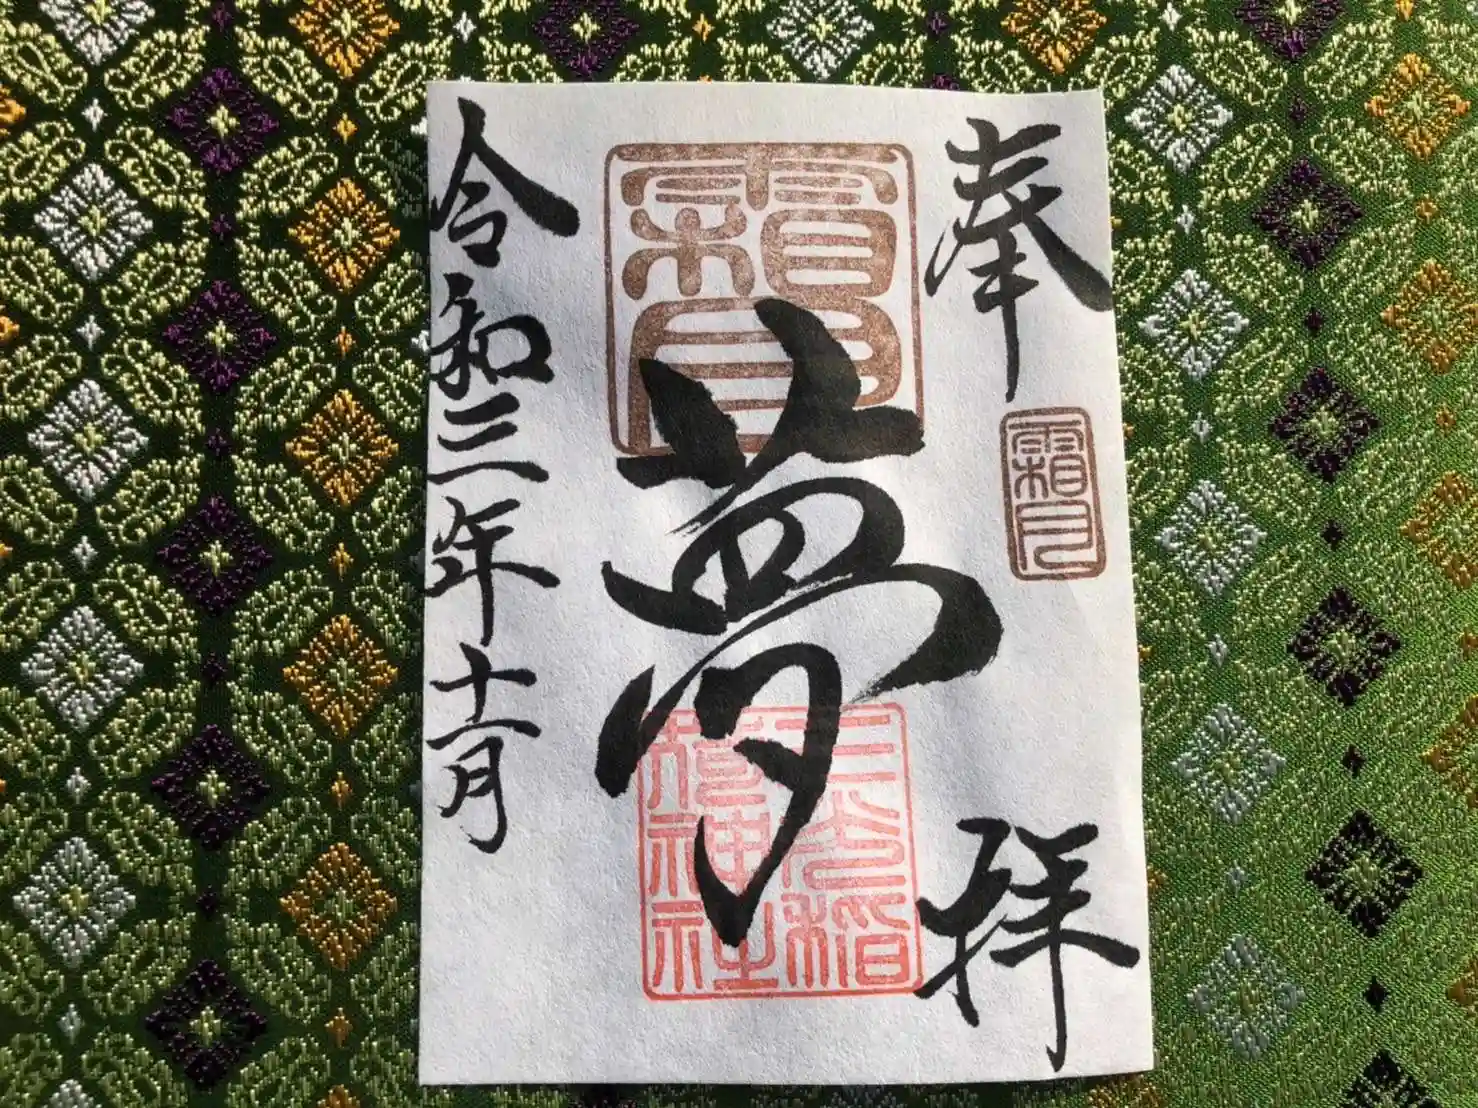 奉拝
霜月
夢
三光稲
荷神社
令和三年十一月